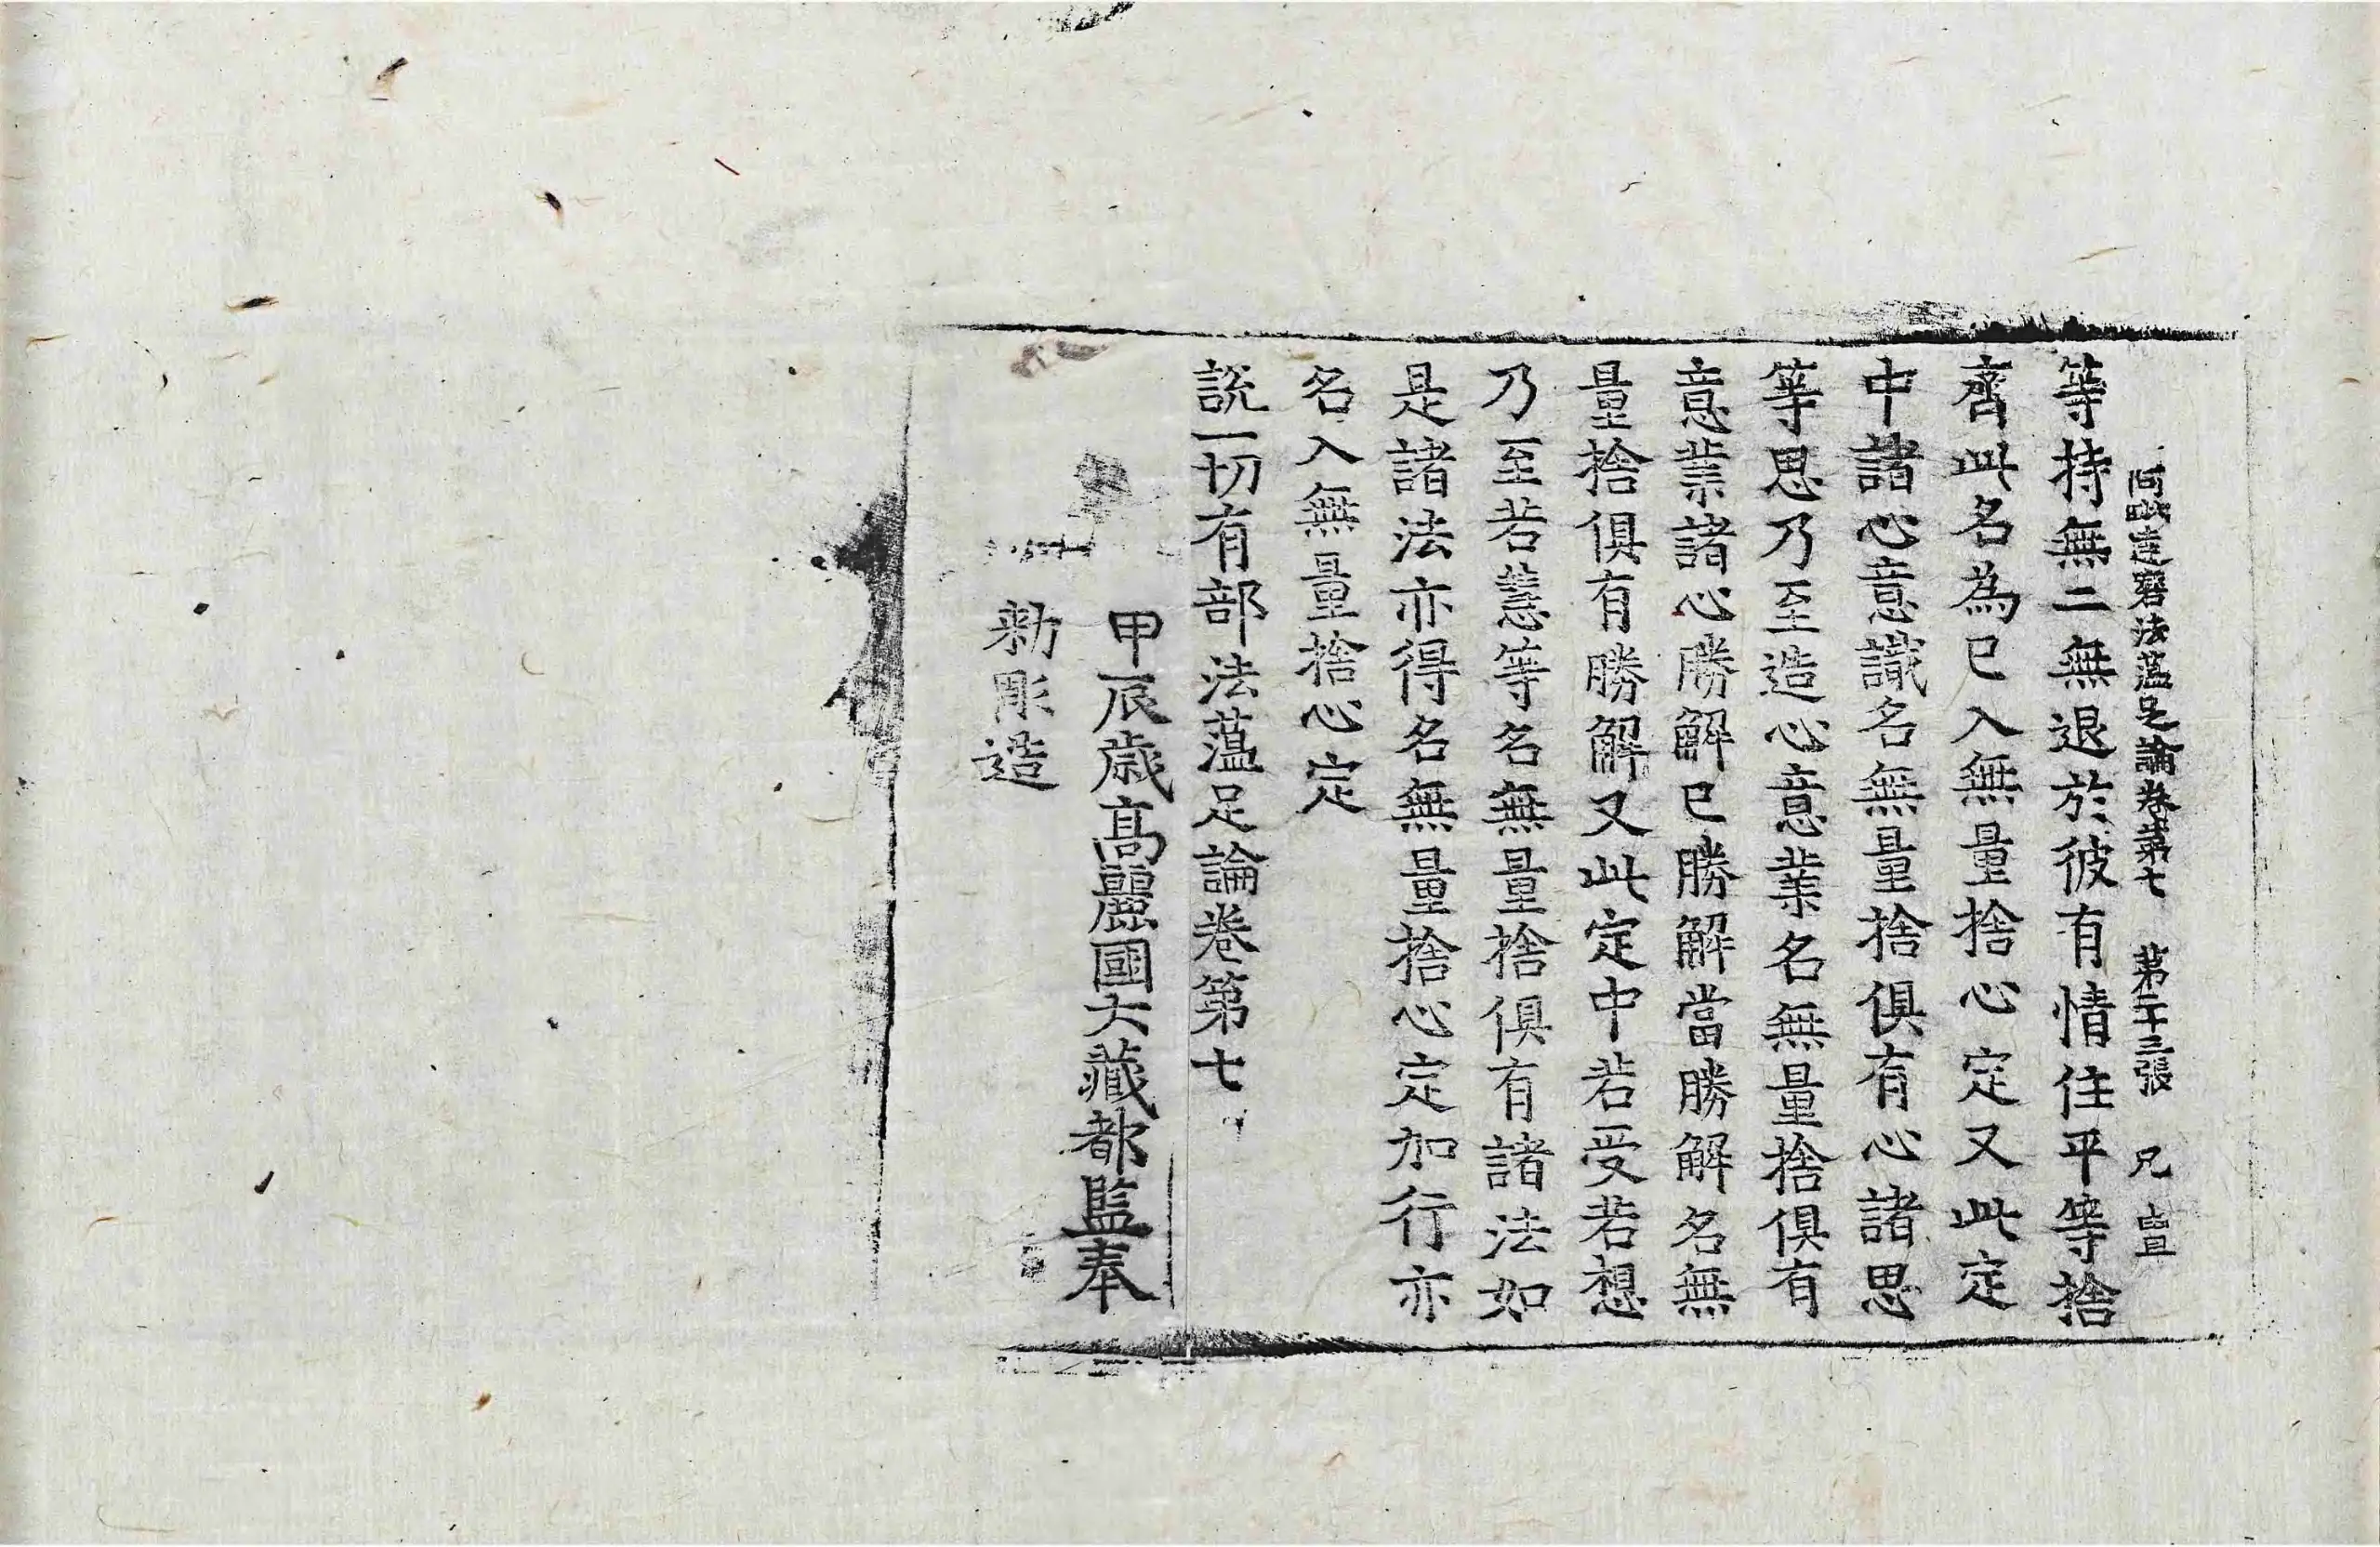 阿毗達磨法蘊足論卷第七　第二十三張　兄
等持無二無退於彼有情住平等捨
齊此名為已入無量捨心定又此定
中諸心意識名無量捨俱有心諸思
等思乃至造心意業名無量捨俱有
意業諸心勝解已勝解當勝解名無
量捨俱有勝解又此定中若受若想
乃至若慧等名無量捨俱有諸法如
是諸法亦得名無量捨心定加行亦
名入無量捨心定
說一切有部法蘊足論卷第七
甲辰歲高麗國大藏都監奉
勑彫造